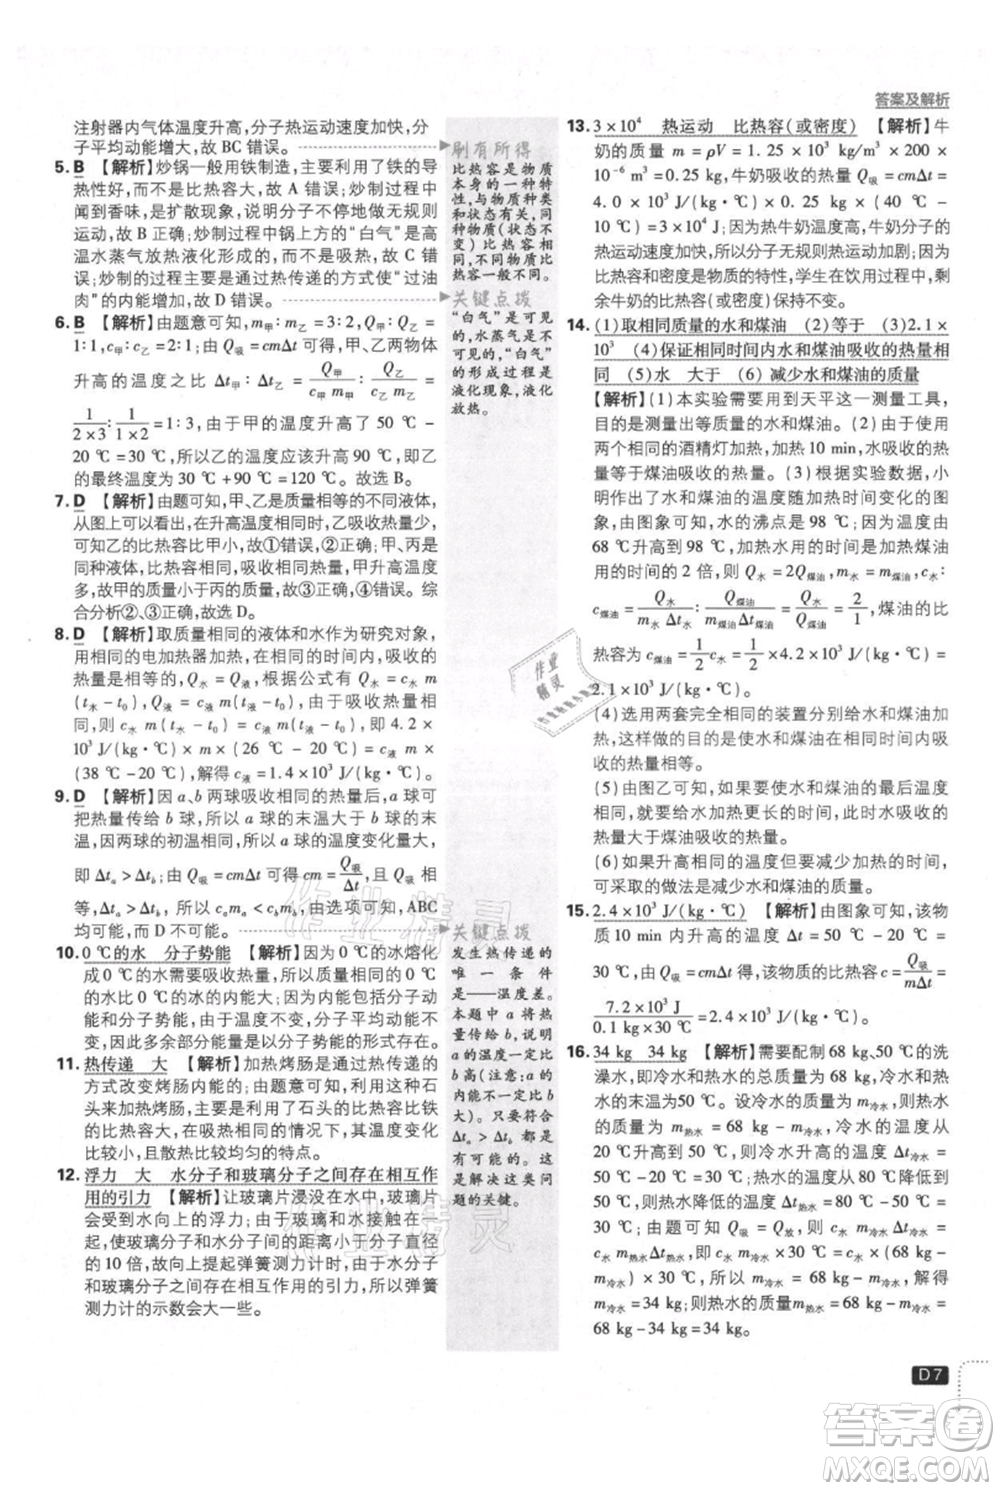 答案及解析
注射器内气体温度升高,分子热运动速度加快,分
子平均动能增大,故 BC 错误。
5. B 【解析】炒锅一般用铁制造,主要利用了铁的导
热性好,与比热容大无关,故 A 错误;炒制过程中
闻到香味,是扩散现象,说明分子不停地做无规则
运动,故 B 正确;炒制过程中锅上方的“白气”是高
温水蒸气放热液化形成的,而不是吸热,故 C 错
误;炒制的过程主要是通过热传递的方式使“过油
肉”的内能增加,故 D 错误。
6. B 【解析】由题意可知,m甲:m乙=3:2,Q甲:Q乙=
1:1,c甲:c乙=2:1;由 Q吸=cmΔt 可得,甲、乙两物体
升高的温度之比 Δt甲:Δt乙=Q甲/(c甲m甲):Q乙/(c乙m乙)=
1/(2×3):1/(1×2)=1:3,由于甲的温度升高了 50 ℃-
20 ℃=30 ℃,所以乙的温度应升高 90 ℃,则乙
的最终温度为 30 ℃+90 ℃=120 ℃,故选 B。
7. D 【解析】由题可知,甲、乙是质量相等的不同液体,
从图上可以看出,在升高温度相同时,乙吸收热量少,
可知乙的比热容比甲小,故①错误,②正确;甲、丙是
同种物质,比热容相同,升高相同温度时,丙吸收热量
多,故甲的质量小于丙的质量,故③正确,④错误。综
合分析②、③正确,故选 D。
8. D 【解析】取质量相同的液体和水作为研究对象,
用相同的电加热器加热,在相同时间内,放出热量
相等,即 Q水=Q液,根据公式 Q吸=cmΔt 可得,
c水m(t水-t0)=c液m(t液-t0),因水和液体的质量相
同,则 c水 m(t水-t0)=c液 m(t液-t0),即 4.2×
10³ J/(kg·℃)×m×(26 ℃-20 ℃)=c液×m×
(38 ℃-20 ℃),解得 c液=1.4×10³ J/(kg·℃)。
9. D 【解析】因 a、b 两球吸收相同的热量后,a 球可
把热量传给 b 球,所以 a 球的末温大于 b 球的末
温。因两球的初温相同,所以 a 球的温度变化量大,
即 Δta>Δtb,由 Q吸=cmΔt 得,cm=Q吸/Δt,因 Q吸相等,
Δta>Δtb,所以,cama<cbmb,由选项可知,ABC
均可能,而 D 不可能。
10. 0 ℃的水 分子势能 【解析】因为 0 ℃的冰熔化
成 0 ℃的水需要吸收热量,所以 0 ℃的水的内能
比 0 ℃的冰的内能大;因为内能包括分子动
能和分子势能,由于温度不变,分子平均动能不
变,因此多余部分能量以分子势能的形式存在。
11. 热传递 大 【解析】加热烤肠是通过热传递的
方式改变烤肠内能的;和用铁板加热相比,用石
头来加热烤肠,利用了石头的比热容比铁的比
热容大,在吸热相同的情况下,其温度变化比较小,
散热比较均匀的特点。
12. 浮力 大 水分子和玻璃分子之间存在相互作
用的引力 【解析】让玻璃片浸没在水中,玻璃片
会受到水向上的浮力;由于玻璃和水接触在一
起,此时玻璃分子和水分子的距离小于分子直径
的 10 倍,因此向上提弹簧测力计时,由于水分子
和玻璃分子之间存在相互作用的引力,所以弹簧
测力计的示数会大一些。
刷有所得
比热容是物质
本身的一种特
性,与物质种类
和状态有关,同
种物质(状态不
变)比热容相
同,不同物质比
热容一般不同。
关键点拨
“白气”是可见
的,水蒸气是不
可见的,“白气”
的形成过程是
液化现象,液化
放热。
关键点拨
发生热传递的
唯一条件
是——温度差。
本题中 a 将热
量传给 b,说明
a 的温度一定比
b 高(注意:a 的
内能不一定比 b
大)。只要符合
Δta>Δtb 的都是
可能成立的,这
是解决这类问
题的关键。
13. 3×10⁴ 热运动 比热容(或密度) 【解析】牛
奶的质量 m=ρV=1.25×10³ kg/m³×200×
10⁻⁶ m³=0.25 kg,牛奶吸收的热量 Q吸=cmΔt=
4.0×10³ J/(kg·℃)×0.25 kg×(40 ℃-
10 ℃)=3×10⁴ J;因热牛奶温度高,牛奶分子的
热运动速度加快,所以分子无规则热运动加剧;因
为比热容和密度是物质的特性,学生在饮用过程中,
剩余牛奶的比热容(或密度)保持不变。
14. (1)取相同质量的水和煤油 (2)等于 (3)2.1×
10³ (4)保证相同时间内水和煤油吸收的热量相
同 (5)水 大于 (6)减少水和煤油的质量
【解析】(1)本实验需要用到天平这一测量工具,
目的是测量等质量的水和煤油。(2)由于使用
两个相同的酒精灯加热,加热 10 min,水吸收的热
量等于煤油吸收的热量。(3)根据实验数据,小
明作出了水和煤油的温度随加热时间变化的图
象,由图象可知,水的沸点是 98 ℃;因为温度由
68 ℃升高到 98 ℃,加热水用的时间是加热煤油
用的时间的 2 倍,所以 Q水=2Q煤油,m水=m煤油,c水:
c煤油=Q水/(m水Δt水):Q煤油/(m煤油Δt煤油)=Q水/Q煤油=2/1,煤油的比
热容为 c煤油=1/2c水=1/2×4.2×10³ J/(kg·℃)=
2.1×10³ J/(kg·℃)。
(4)选用两套完全相同的装置分别给水和煤油加
热,这样做的目的是使水和煤油在相同时间内吸
收的热量相同。
(5)由图乙可知,如果要使水和煤油的最后温度
相同,就要给水加热更长的时间,此时,水吸收的
热量大于煤油吸收的热量。
(6)如果升高相同的温度但要减少加热的时间,
可采取的做法是减少水和煤油的质量。
15. 2.4×10³ J/(kg·℃) 【解析】由图象可知,该物
质 10 min 内升高的温度 Δt=50 ℃-20 ℃=
30 ℃,由 Q吸=cmΔt 得,该物质的比热容 c=Q吸/(mΔt)=
7.2×10³ J/(0.1 kg×30 ℃)=2.4×10³ J/(kg·℃)。
16. 34 kg 34 kg 【解析】需要配制 68 kg、50 ℃的洗
澡水,即冷水和热水的总质量为 68 kg,冷水和热
水的末温为 50 ℃。设冷水的质量为 m冷水,则热水
的质量为 m热水=68 kg-m冷水,冷水的温度从
20 ℃升高到 50 ℃,则冷水升高的温度 Δt冷水=
30 ℃,热水的温度从 80 ℃降低到 50 ℃,则
热水降低的温度 Δt热水=80 ℃-50 ℃=
30 ℃;由题可知 Q吸=Q放,即 c水m冷水Δt冷水=
c水m热水Δt热水,所以 m冷水=m热水=68 kg-m冷水,解得
m冷水=34 kg;则热水的质量 m热水=68 kg-m冷水=
68 kg-34 kg=34 kg。
D7
作业精灵
作业精灵
作业精灵
答案卷
MXQE.COM